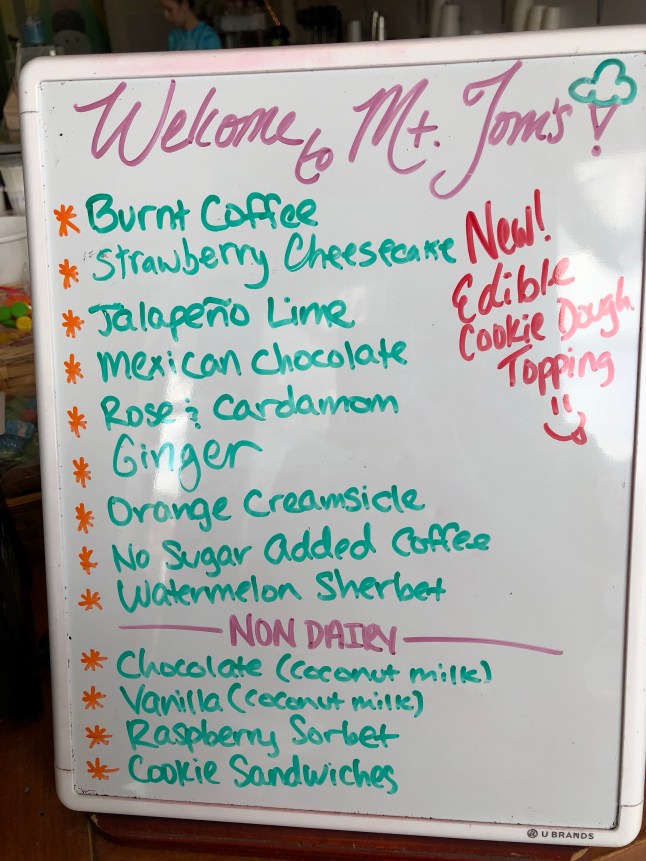 Welcome to Mt. Tom's!
* Burnt Coffee
* Strawberry Cheesecake
* Jalapeño Lime
* Mexican Chocolate
* Rose & Cardamom
* Ginger
* Orange Creamsicle
* No Sugar Added Coffee
* Watermelon Sherbet
New!
Edible
Cookie Dough
Topping
NON DAIRY
* Chocolate (coconut milk)
* Vanilla (coconut milk)
* Raspberry Sorbet
* Cookie Sandwiches
U BRANDS